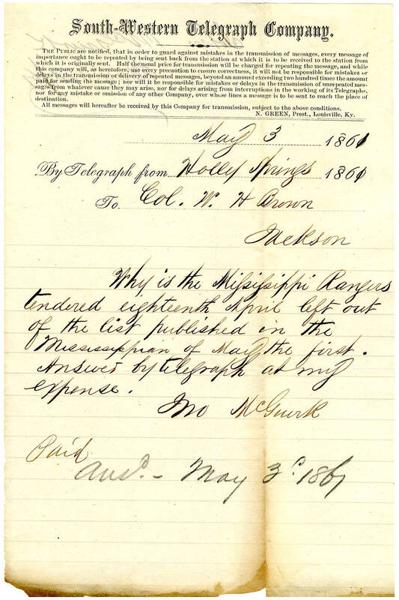 South-Western Telegraph Company.
The Public are notified, that in order to guard against mistakes in the transmission of messages, every message of
importance ought to be repeated by being sent back from the station at which it is to be received to the station from
which it is originally sent. Half the usual price for transmission will be charged for repeating the message, and while
this company will, as heretofore, use every precaution to ensure correctness, it will not be responsible for mistakes or
delays in the transmission or delivery of repeated messages, beyond an amount exceeding two hundred times the amount
paid for sending the message; nor will it be responsible for mistakes or delays in the transmission of unrepeated mes-
sages from whatever cause they may arise, nor for delays arising from interruptions in the working of its Telegraphs,
nor for any mistake or omission of any other Company, over whose lines a message is to be sent to reach the place of
destination.
All messages will hereafter be received by this Company for transmission, subject to the above conditions.
N. GREEN, Prest., Louisville, Ky.
May 3 1861
By Telegraph from Holly Springs 1861
To Col. W. H Brown
Jackson
Why is the Mississippi Rangers
tendered eighteenth April left out
of the list published in the
Mississippian of May the first.
Answer by telegraph at my
expense.
Jno McGuirk
Paid
Ansd. - May 3d 1861